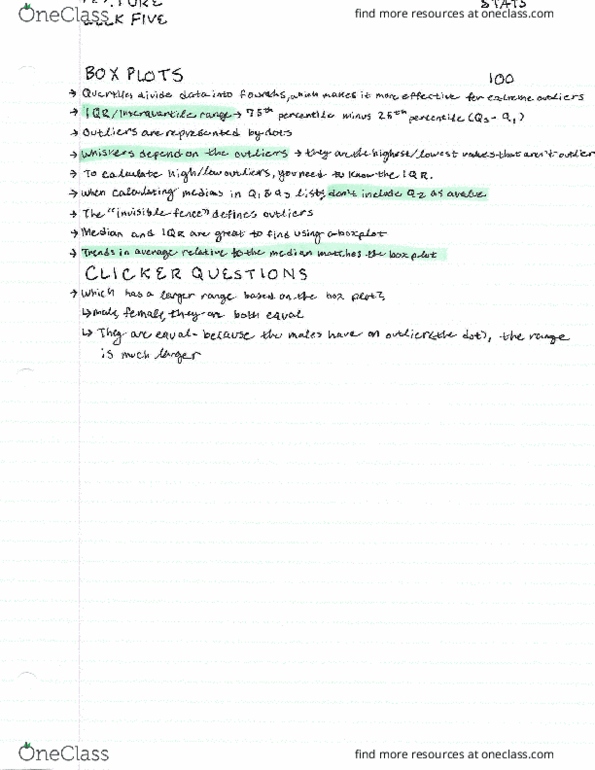 OneClass
find more resources at oneclass.com
STATS
WEEK FIVE
BOX PLOTS
100
→ Quartiles divide data into fourths, which makes it more effective for extreme outliers
→ IQR/Interquartile range → 75th percentile minus 25th percentile (Q3 - Q1)
→ Outliers are represented by dots
→ Whiskers depend on the outliers → they are the highest/lowest values that aren't outliers
→ To calculate high/low outliers, you need to know the IQR.
→ When calculating medians in Q1 & Q3 lists, don't include Q2 as a value
→ The "invisible fence" defines outliers
→ Median and IQR are great to find using a boxplot
→ Trends in average relative to the median matches the box plot
CLICKER QUESTIONS
→ Which has a larger range based on the box plot?
↳ male, female, they are both equal
↳ They are equal - because the males have an outlier (the dot), the range
is much larger
OneClass
find more resources at oneclass.com